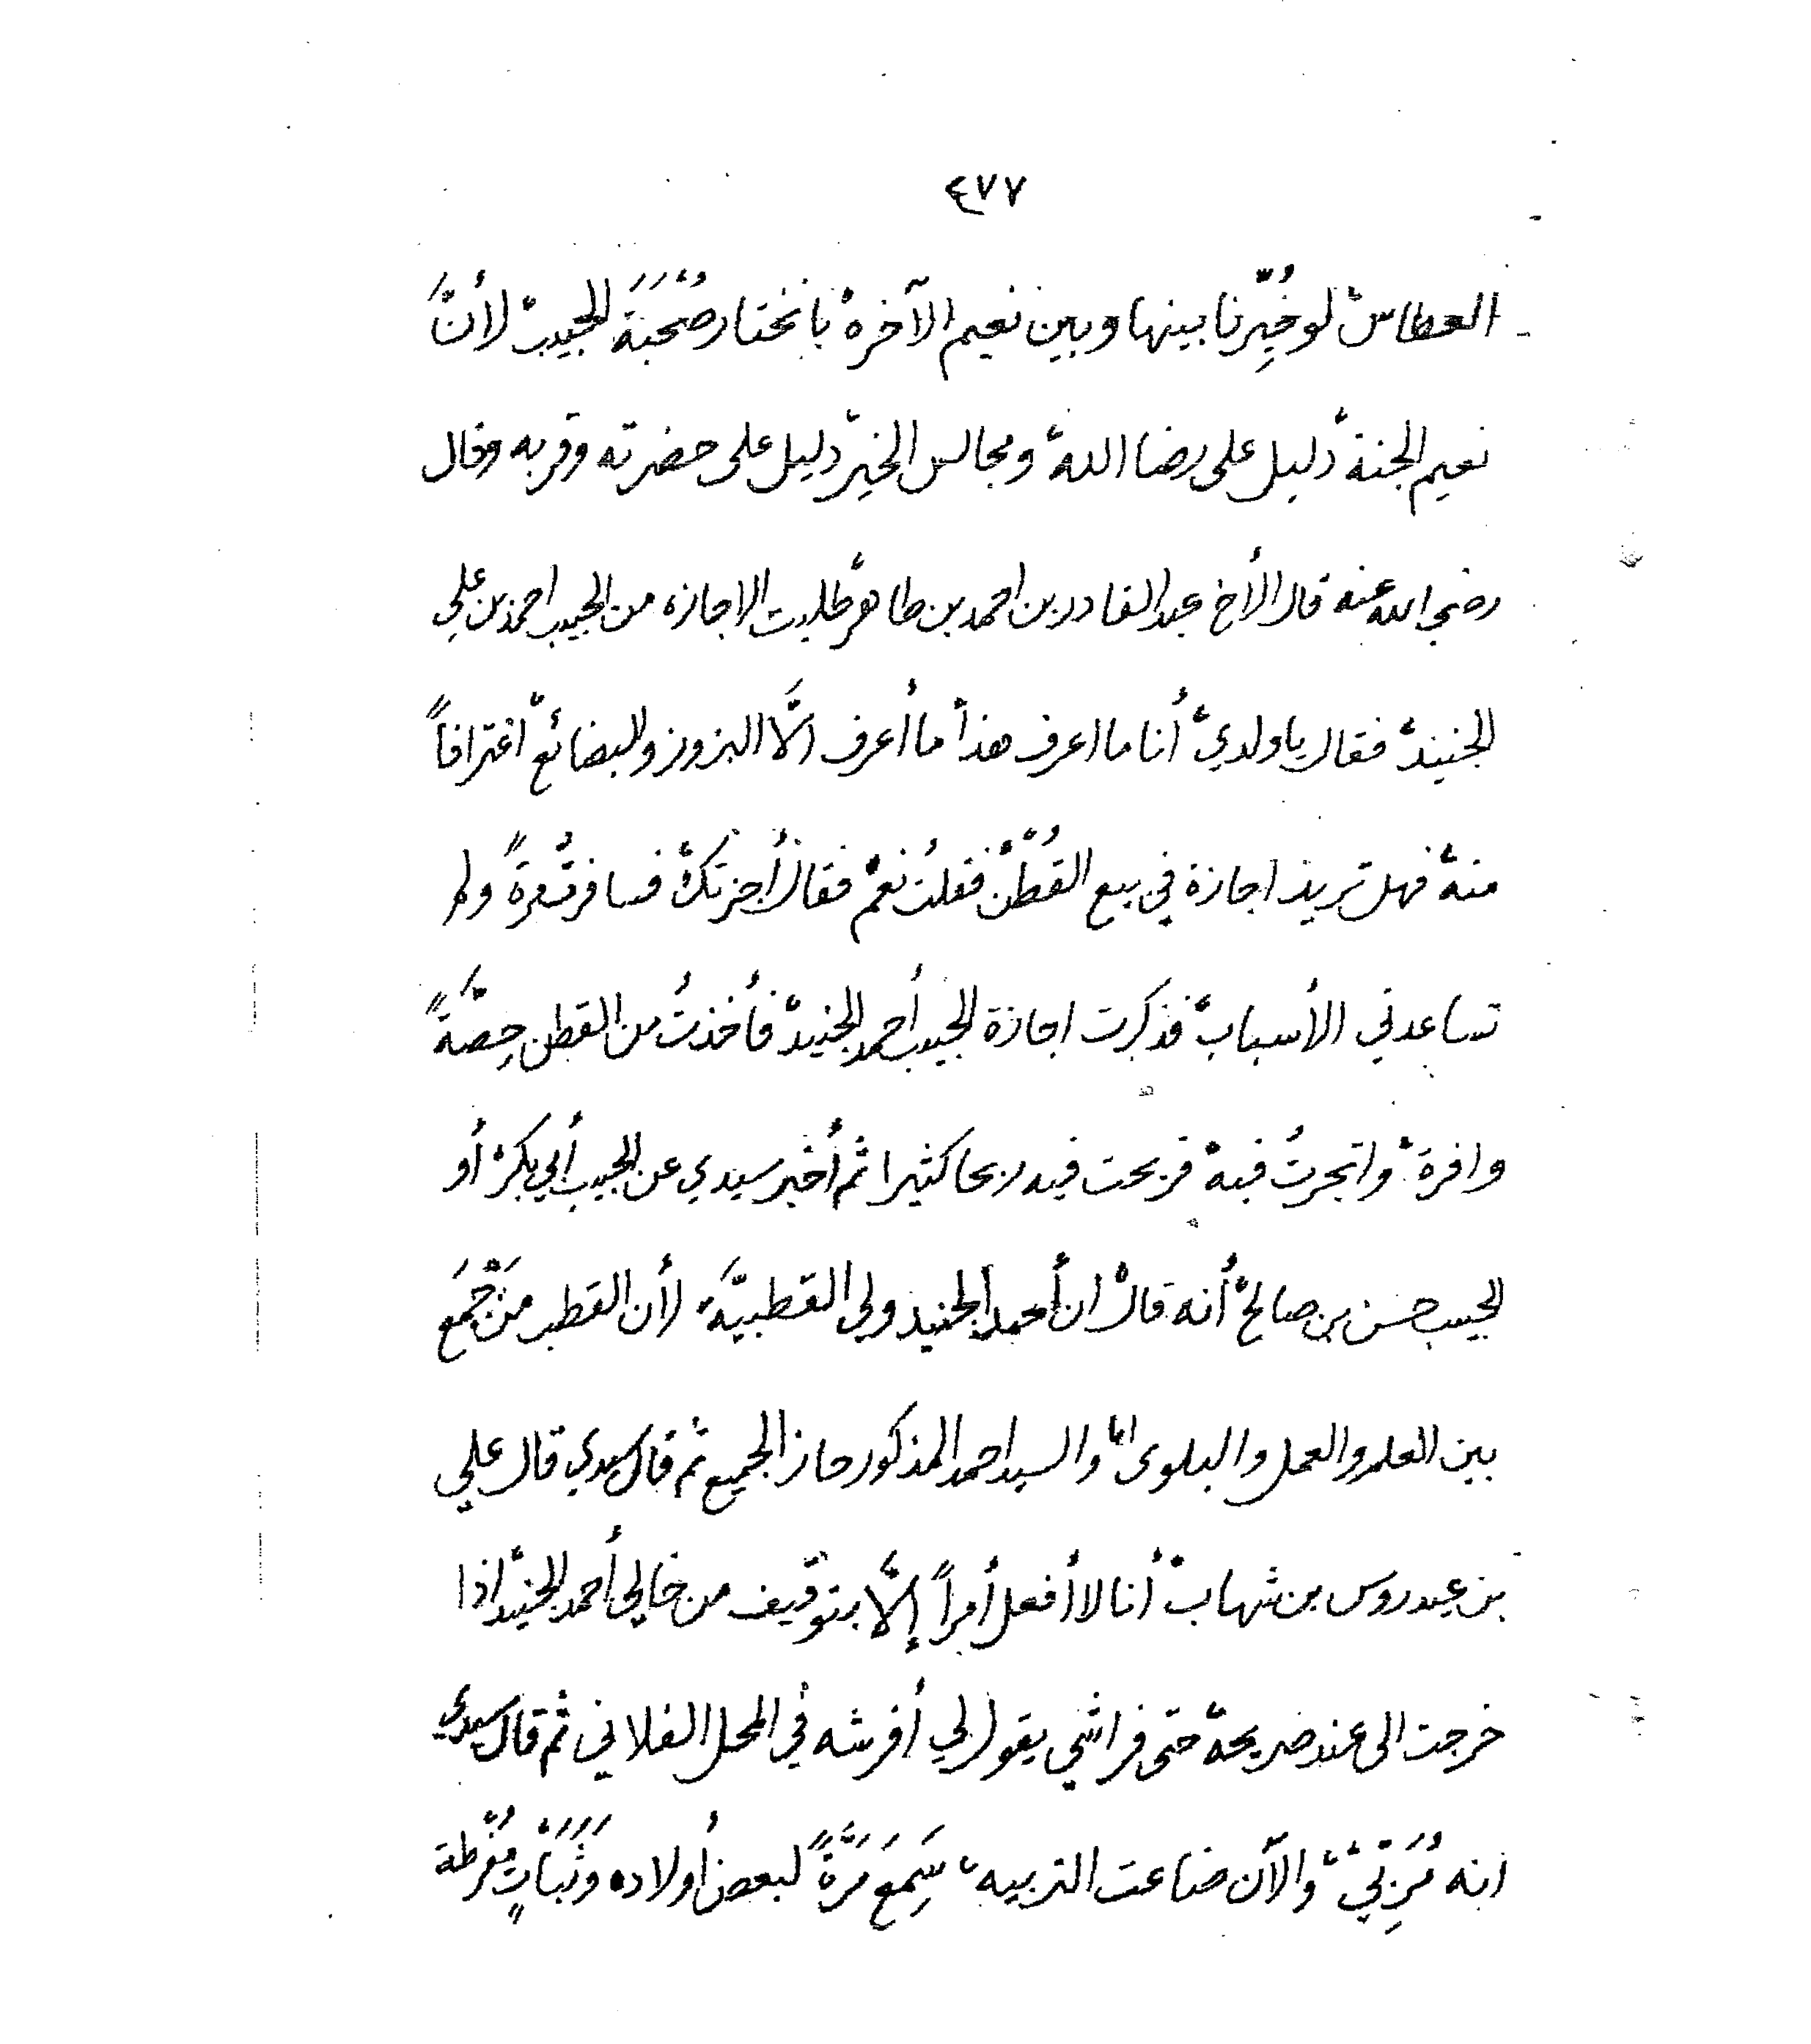 ٤٧٧
العطاس لو خُيِّرنا بينها وبين نعيم الآخرة بانختار صُحْبَةَ الحبيب لأنَّ
نعيم الجنة دليل على رضا الله ومجالس الخير دليل على حضرته وقربه وقال
رضي الله عنه قال الأخ عبد القادر بن احمد بن طاهر طلبت الاجازه من الحبيب احمد بن علي
الجنيد فقال يا ولدي أنا ما اعرف هذا ما أعرف الَّا البزوز والبضائع اغترافاً
منه فهل تريد اجازة في بيع القُطْن فقلتُ نعم فقال أجزتك فسافرتُ مرةً ولم
تساعدني الأسباب فذكرت اجازة الحبيب أحمد الجنيد فأخذتُ من القطن حِصَّةً
وافرة واتجرتُ فيه فربحت فيه ربحا كثيرا ثم أخبر سيدي عن الحبيب أبي بكر أو
الحبيب حسن بن صالح أنه قال ان أحمد الجنيد ولي القطبيَّة لأن القطب مَنْ جَمَعَ
بين العلم والعمل والبلوى والسيد احمد المذكور حاز الجميع ثم قال سيدي قال علي
بن عيدروس بن شهاب أنا لا أفعل أمراً إلَّا بتوقيف من خالي أحمد الجنيد اذا
خرجت الى عند ضريحه حتى فراشي يقول لي أفرشه في المحل الفلاني ثم قال سيدي
انه مُرَبِّيْ والآن ضاعت التربيه سَمِعَ مَرَّةً لبعض أولاده وَثَبَاتٍ مُفْرطة